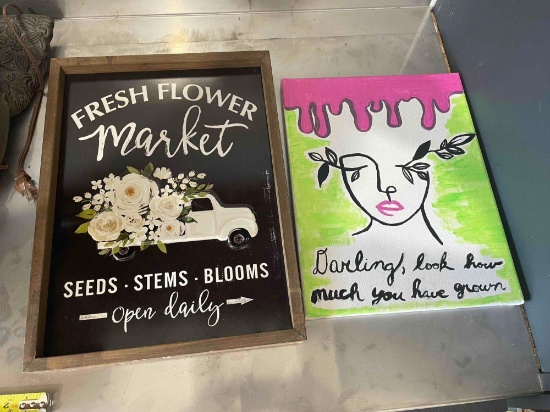 FRESH FLOWER
Market
SEEDS · STEMS · BLOOMS
Open daily
Darling, look how
much you have grown